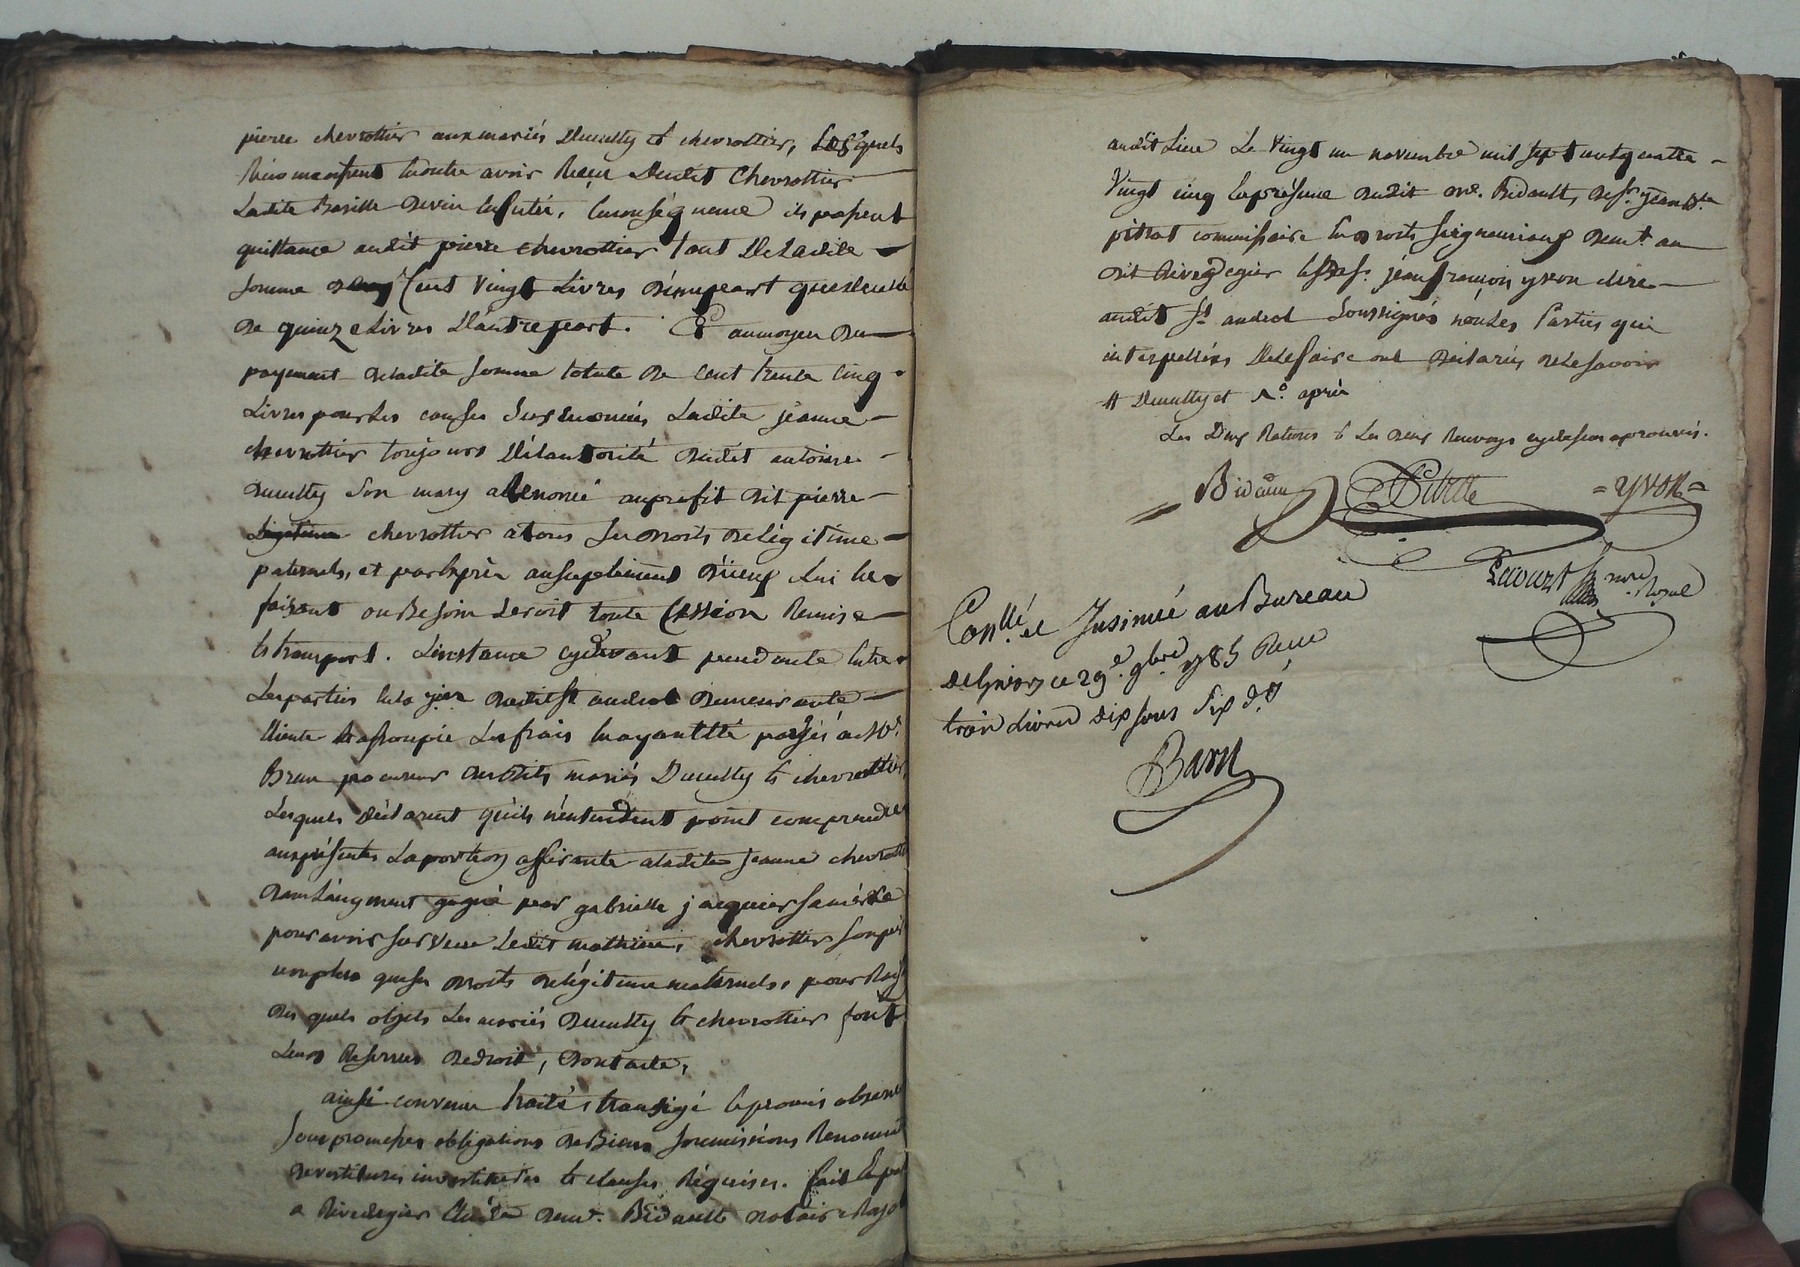 pierre chevrottier aux mariés Deculty & chevrottier, Lesquels
Reconnoissent en outre avoir Reçu dudit Chevrottier
Ladite Barille de vin en futée, en conséquence ils passent
quittance audit pierre chevrottier tant De Ladite
somme de Cent Vingt Livres d'une part que de celle
de quinze Livres D'autre part. Et au moyen du
payement de ladite somme totale de Cent trente Cinq
Livres pour les causes susénoncées Ladite jeanne
chevrottier toujours De l'autorité dudit antoine
Deculty son mary a Renoncé au profit dit pierre
chevrottier a tous ses droits de légitime
paternels, et par exprès au suplément d'iceux lui en
faisant ou Besoin seroit toute Cession Remise
& transport. L'instance cydevant pendante entre
Les parties dudit St andeol demeurante
éteinte & assoupie Les frais en ayant été payés a Me
Brun procureur desdits mariés Deculty & chevrottier
Lesquels déclarent qu'ils n'entendent point comprendre
aux présentes La portion afférante a ladite jeanne chevrottier
dans L'augment gagné par gabrielle jacquier sa mère
pour avoir survécu Ledit mathieu chevrottier son père
non plus que ses droits de légitime maternels, pour Rais
des quels objets Les mariés Deculty & chevrottier font
Leurs Reserves de droit, dont acte,
ainsi convenu traité, transigé & promis observer
sous promesses obligations de Biens soumissions Renonci
devestitures investitures & clauses Réquises. fait & passé
a Riverdegier Etude de Me. Bidault notaire Royal
audit Lieu Le Vingt un novembre mil sept cent quatre
Vingt cinq En présence dudit Me. Bidault, de sr. jean Bte
pitrat commissaire en droits seigneuriaux demt. au
dit Rivedegier & de sr. jean françois yvon clerc
audit St andeol Soussignés non Les Parties qui
interpellées De le faire ont déclarés ne le savoir
# Deculty et
Les Deux Ratures & Les deux Renvoys cydessus aprouvés.
Bidault Pitrat =yvon=
Lecourt nore Royal
Conllé. et Insinué au Bureau
de Givors ce 29e. 9bre 1785 Reçu
trois Livres dix sous six d.
Baron